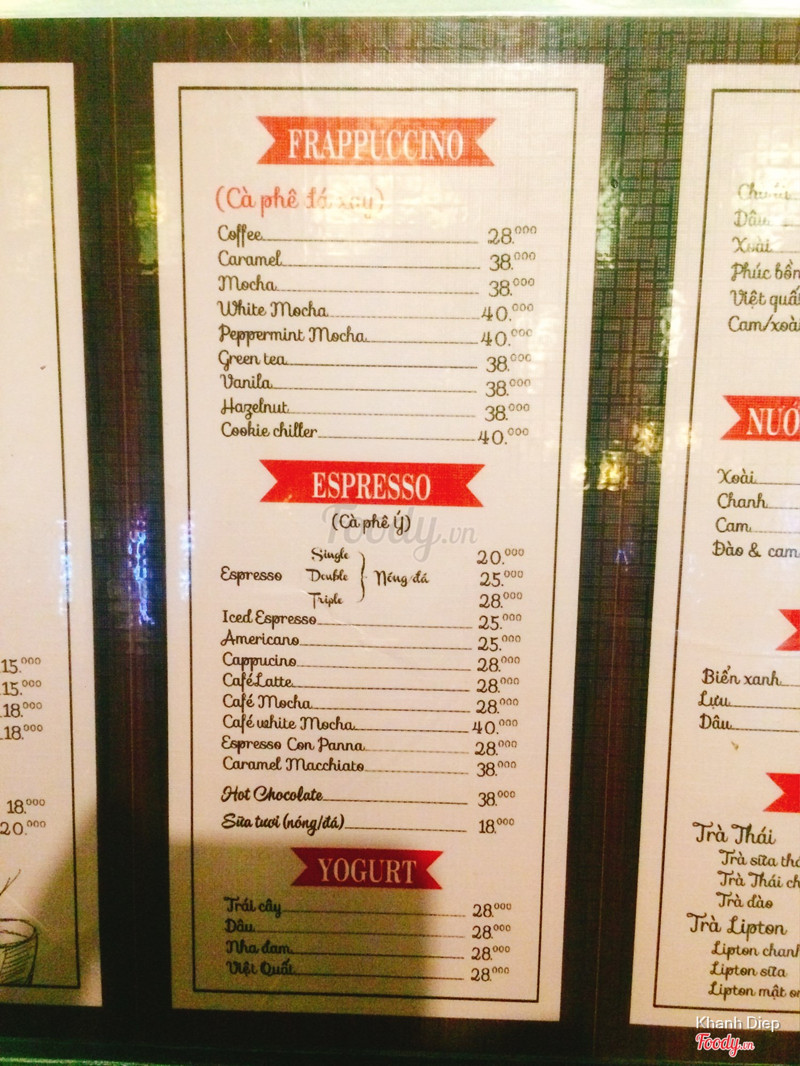 15.000
15.000
18.000
18.000
18.000
20.000
FRAPPUCCINO
(Cà phê đá xay)
Coffee 28.000
Caramel 38.000
Mocha 38.000
White Mocha 40.000
Peppermint Mocha 40.000
Green tea 38.000
Vanila 38.000
Hazelnut 38.000
Cookie chiller 40.000
ESPRESSO
(Cà phê Ý)
Foody.vn
Single 20.000
Espresso Double Nóng/đá 25.000
Triple 28.000
Iced Espresso 25.000
Americano 25.000
Cappucino 28.000
CaféLatte 28.000
Café Mocha 28.000
Café white Mocha 40.000
Espresso Con Panna 28.000
Caramel Macchiato 38.000
Hot Chocolate 38.000
Sữa tươi (nóng/đá) 18.000
YOGURT
Trái cây 28.000
Dâu 28.000
Nha đam 28.000
Việt Quất 28.000
Dâu
Xoài
Phúc bồn
Việt quấ
Cam/xoài
NƯỚ
Xoài
Chanh
Cam
Đào & cam
Biển xanh
Lựu
Dâu
Trà Thái
Trà sữa thá
Trà Thái ch
Trà đào
Trà Lipton
Lipton chanh
Lipton sữa
Lipton mật on
Khanh Diep
Foody.vn